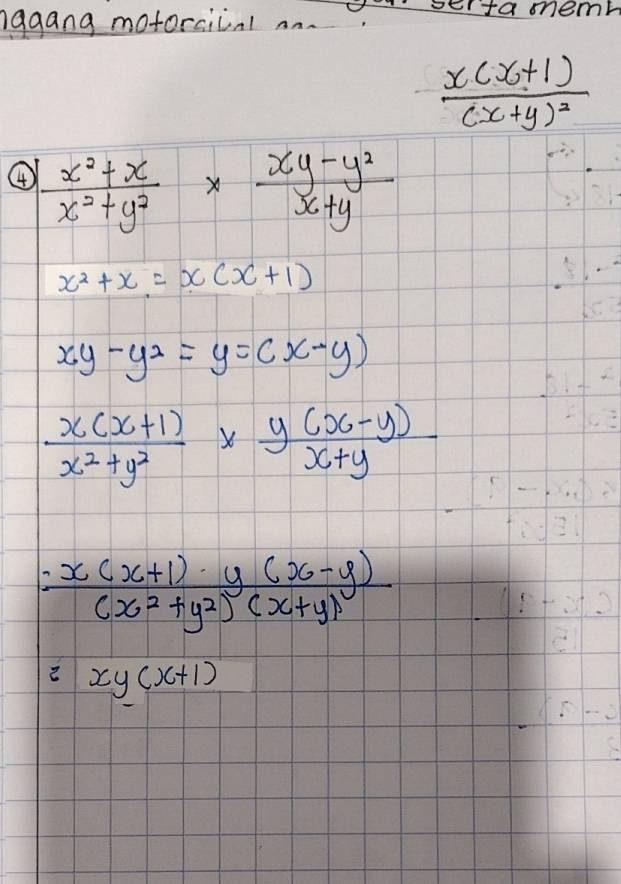 nagang motor
serta memb
x(x+1) / (x+y)²
④ x²+x / x²+y² × xy-y² / x+y
x²+x = x(x+1)
xy-y² = y=(x-y)
x(x+1) / x²+y² × y(x-y) / x+y
-x(x+1)·y(x-y) / (x²+y²)(x+y)
= xy(x+1)